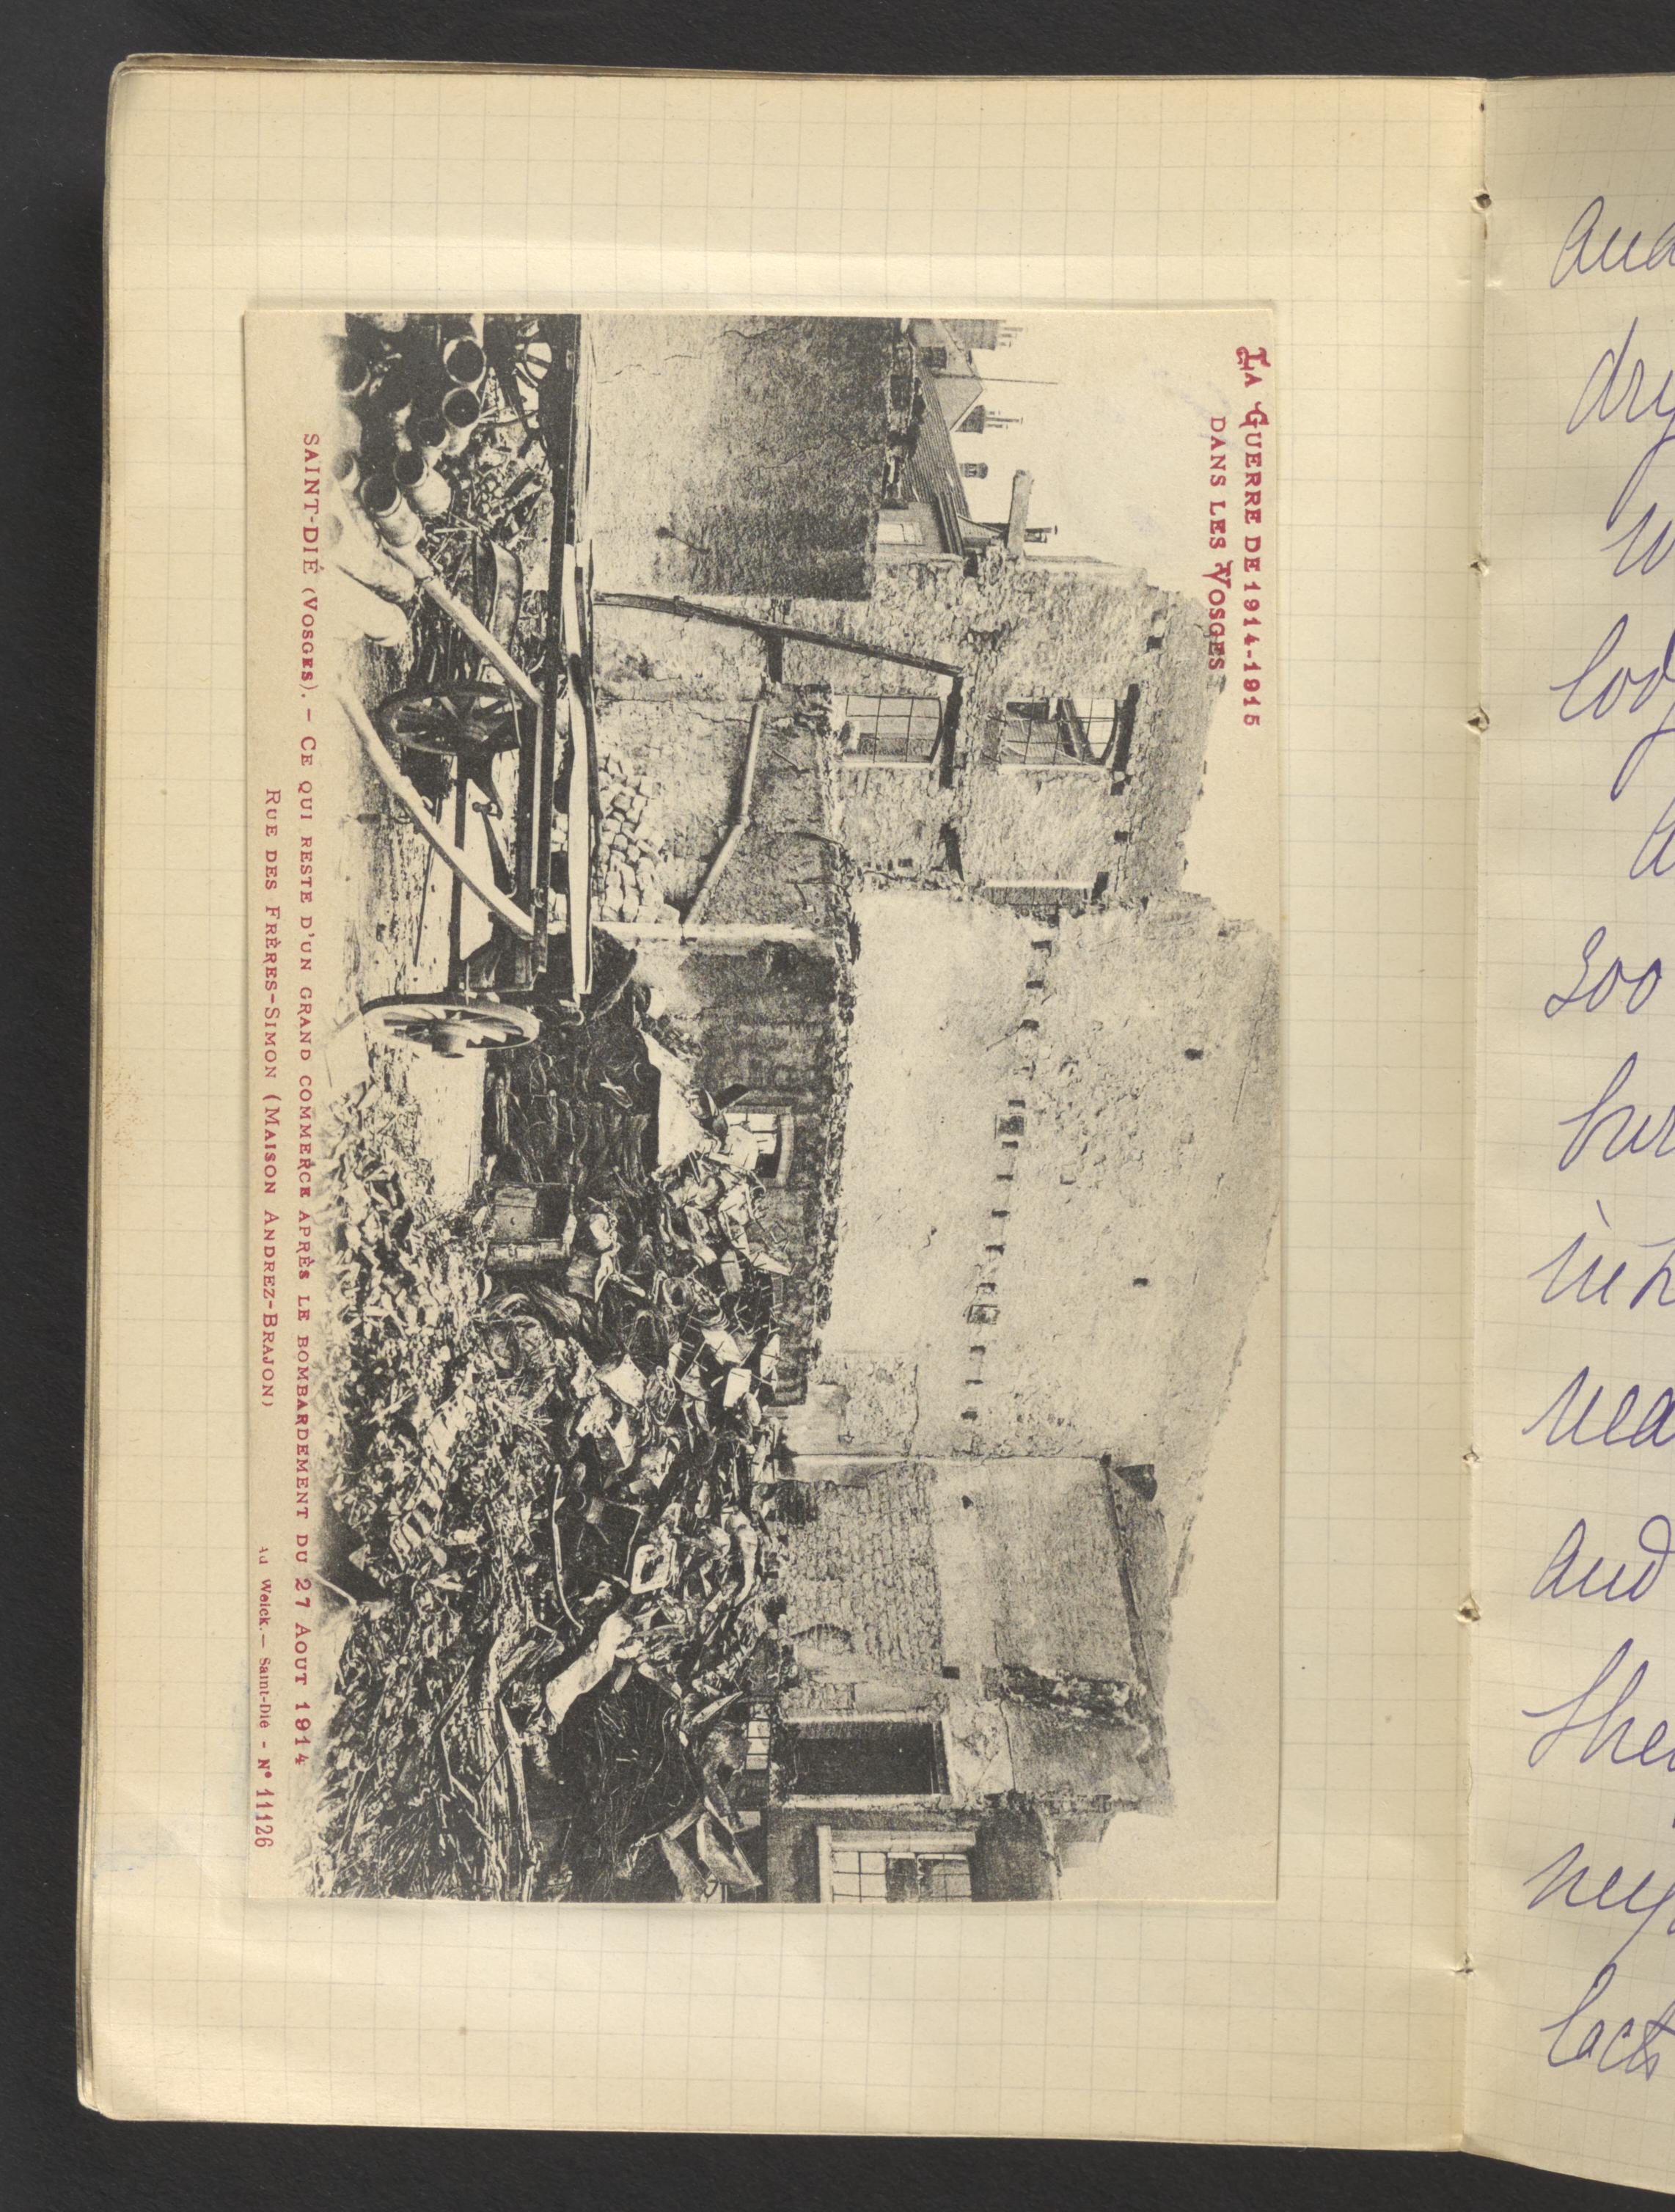 La Guerre de 1914-1915
dans les Vosges
SAINT-DIÉ (VOSGES). – CE QUI RESTE D'UN GRAND COMMERCE APRÈS LE BOMBARDEMENT DU 27 AOUT 1914
RUE DES FRÈRES-SIMON (MAISON ANDREZ-BRAJON)
Ad Weick. – Saint-Dié - N° 11126
and
300
and